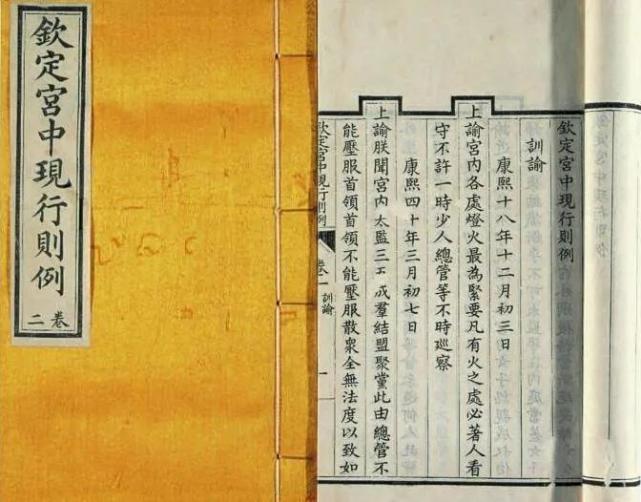 欽定宮中現行則例
二卷
欽定宮中現行則例
訓諭
康熙十八年十二月初三日
上諭宮内各處燈火最為緊要凡有火之處必著人看
守不許一時少人總管等不時廵察
康熙四十年三月初七日
上諭朕聞宮内太監三五成羣結盟聚黨此由總管不
能壓服首領首領不能壓服散衆全無法度以致如
欽定宮中現行則例
卷一
訓諭
一